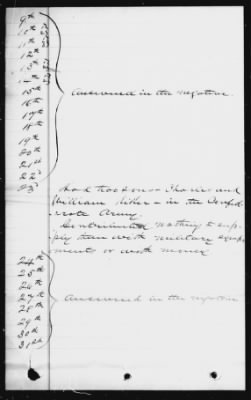 9th
10th
11th
12th
13th
15th
16th
17th
18th
19th
20th
21st
22d
Answered in the negative.
23d
Had two sons Charles and
William
in the Confed-
erate Army.
Contributed nothing to sup-
ply them with military equip-
ments or with money
24th
25th
26th
27th
28th
29th
30th
31st
Answered in the negative